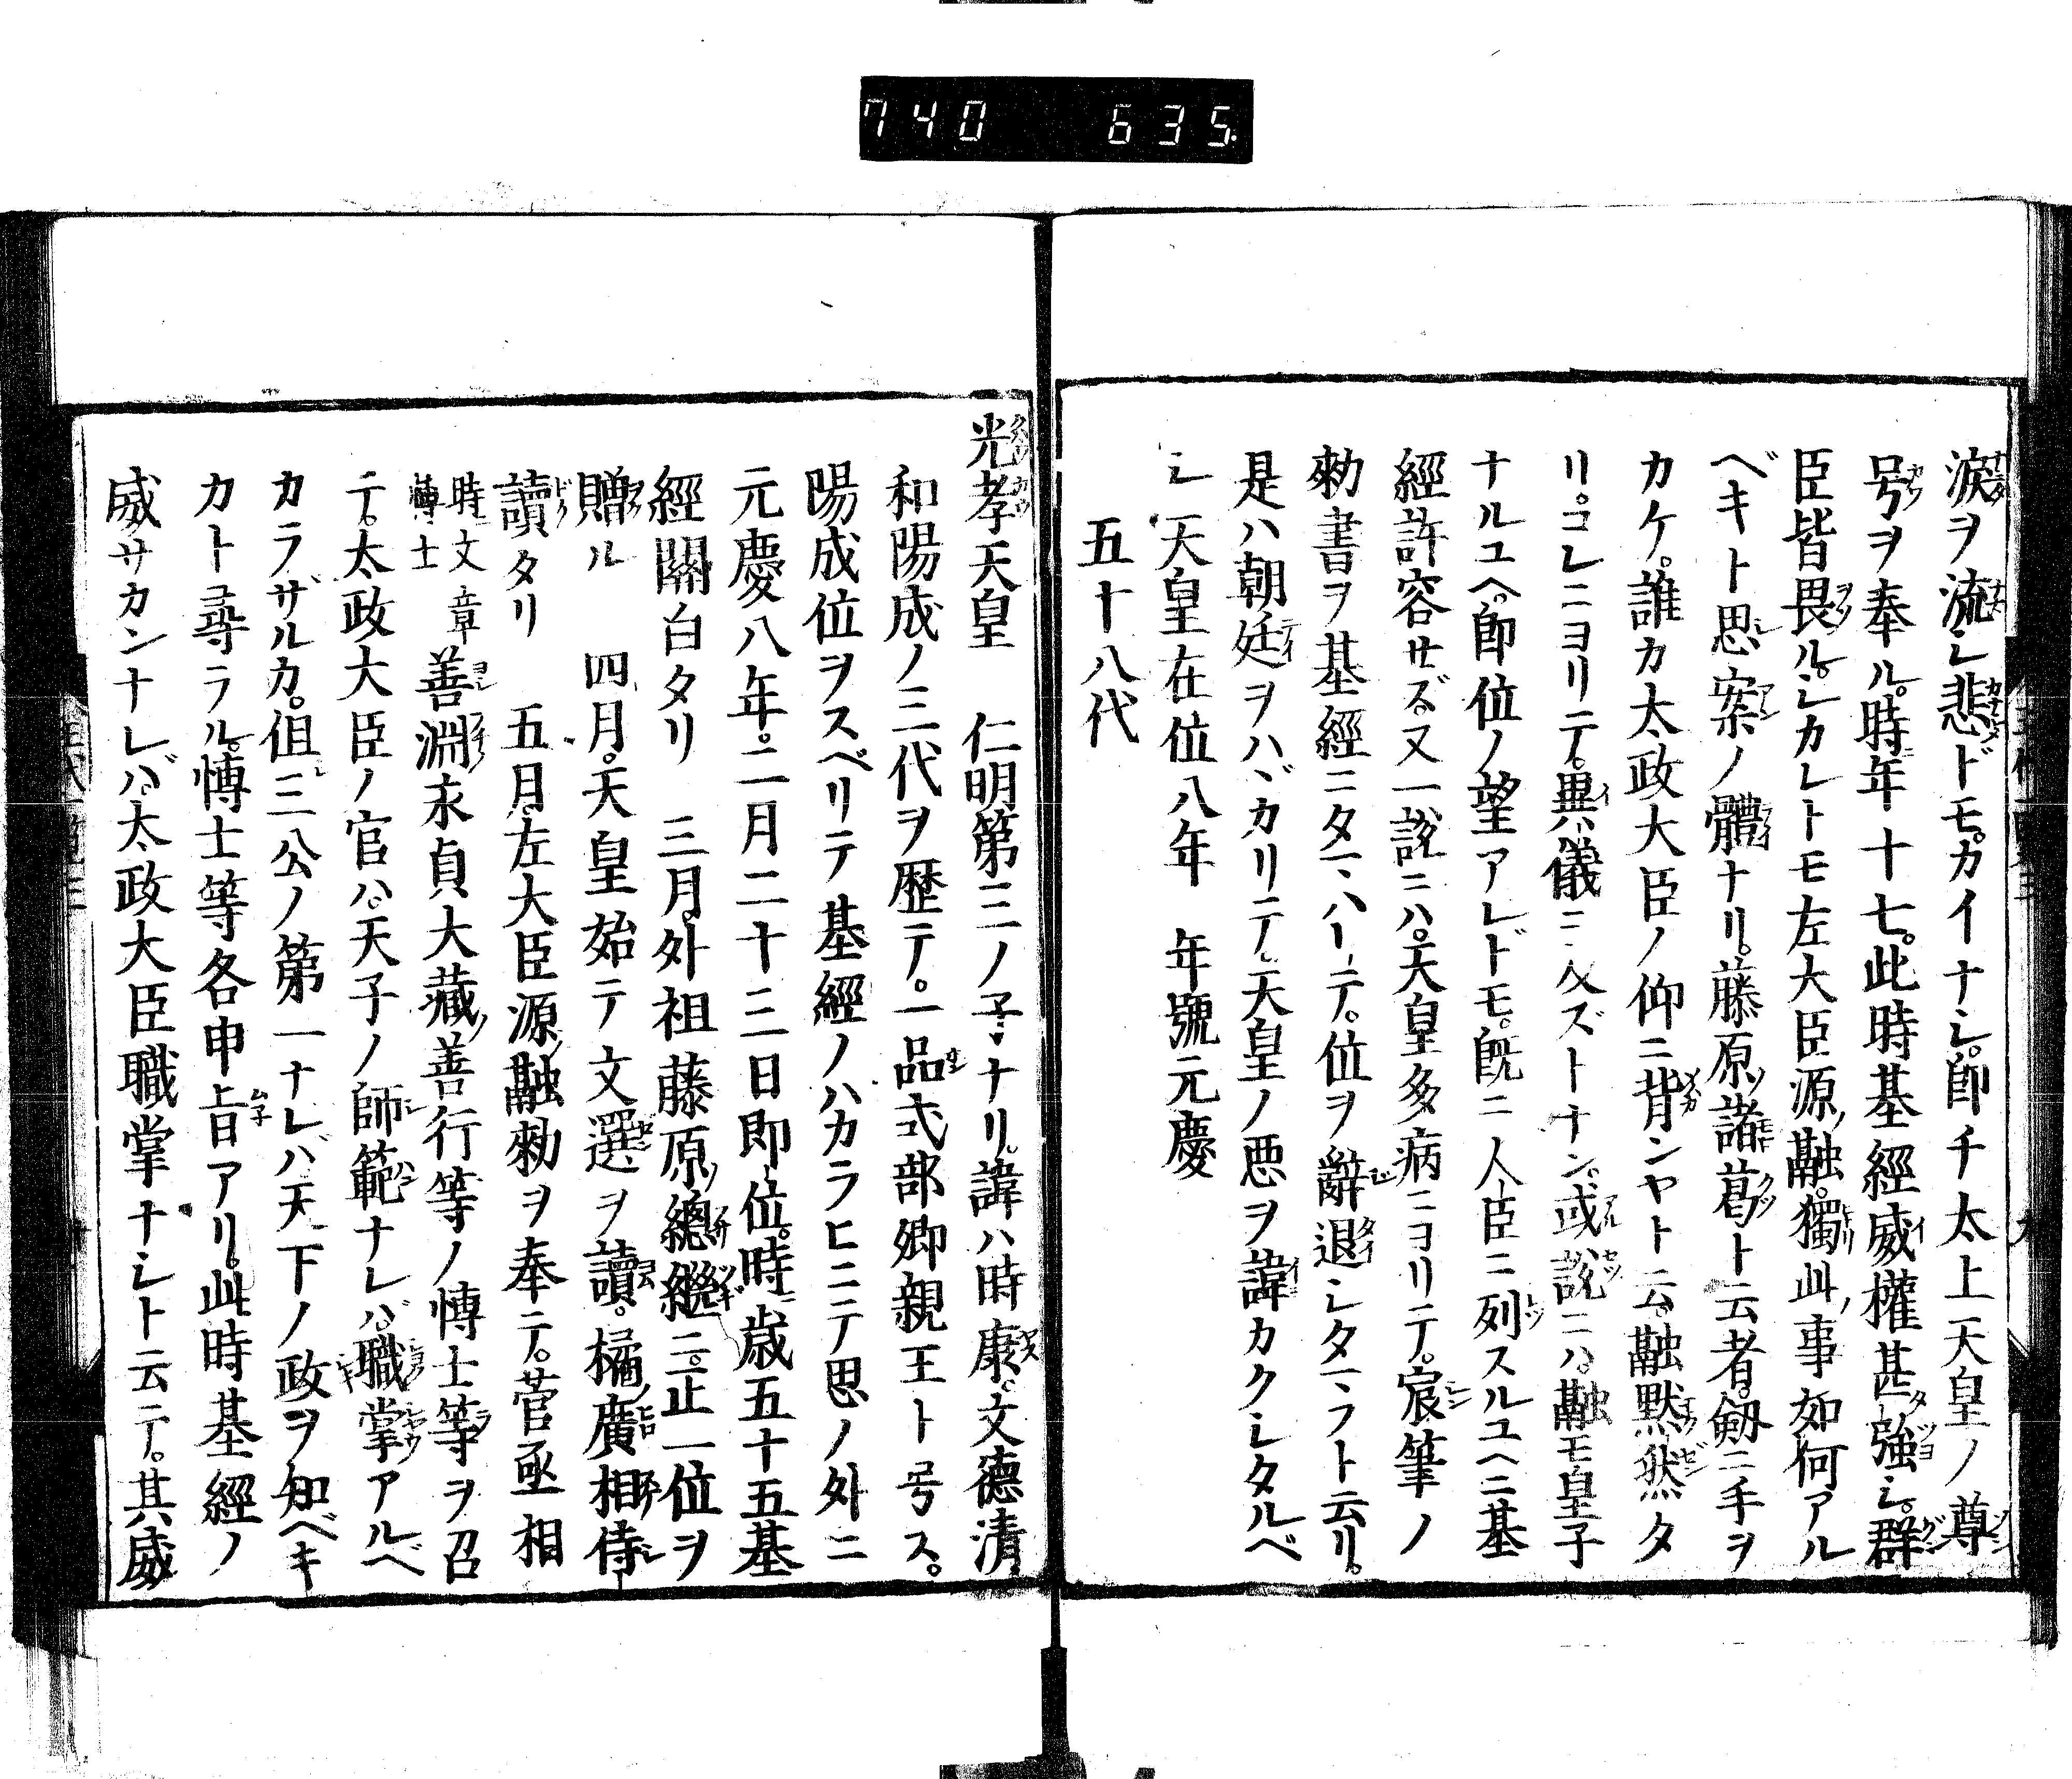 740 635
涙ヲ流シ悲ドモ。カイナシ。卽チ太上天皇ノ尊
号ヲ奉ル。時年十七。此時基經威權甚強シ。群
臣皆畏ル。シカレトモ左大臣源融。獨此事如何アル
ベキト思案ノ體ナリ。藤原諸葛ト云者。劒ニ手ヲ
カケ。誰カ太政大臣ノ仰ニ背ンヤト云。融黙然タ
リ。コレニヨリテ。異儀ニ及ズトナン。或說ニハ。融モ皇子
ナルユヘ。卽位ノ望アレドモ。旣ニ人臣ニ列スルユヘニ基
經許容セズ。又一說ニハ。天皇多病ニヨリテ。宸筆ノ
勅書ヲ基經ニタマハリテ。位ヲ辭退シタマフト云リ。
是ハ朝廷ヲハヾカリテ。天皇ノ悪ヲ諱カクシタルベ
シ 天皇在位八年 年號元慶
五十八代
光孝天皇 仁明第三ノ子ナリ。諱ハ時康。文德清
和陽成ノ三代ヲ歷テ。一品式部卿親王ト号ス。
陽成位ヲスベリテ基經ノハカラヒニテ思ノ外ニ
元慶八年。二月二十三日卽位。時歲五十五基
經關白タリ 三月。外祖藤原總繼ニ。正一位ヲ
贈ル 四月。天皇始テ文選ヲ讀。橘廣相侍
讀タリ 五月。左大臣源融勅ヲ奉テ。菅丞相
時文章博士善淵永貞大藏善行等ノ博士等ヲ召
テ。太政大臣ノ官ハ。天子ノ師範ナレバ。職掌アルベ
カラザルカ。但三公ノ第一ナレバ天下ノ政ヲ知ベキ
カト尋ラル。博士等各申旨アリ。此時基經ノ
威サカンナレバ。太政大臣職掌ナシト云テ。其威